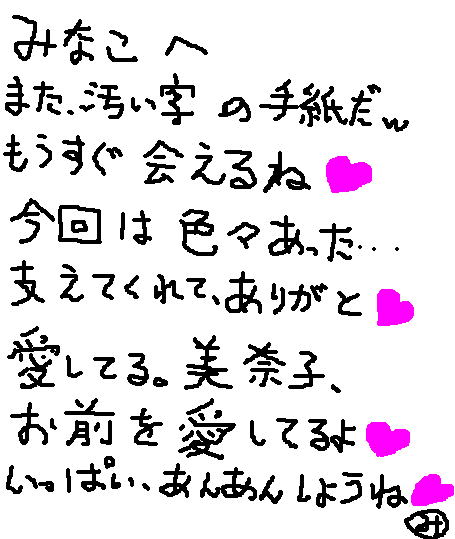 みなこへ
また、汚い字の手紙だw
もうすぐ会えるね
今回は色々あった…
支えてくれて、ありがと
愛してる。美奈子、
お前を愛してるよ
いっぱい、あんあんしようね
み